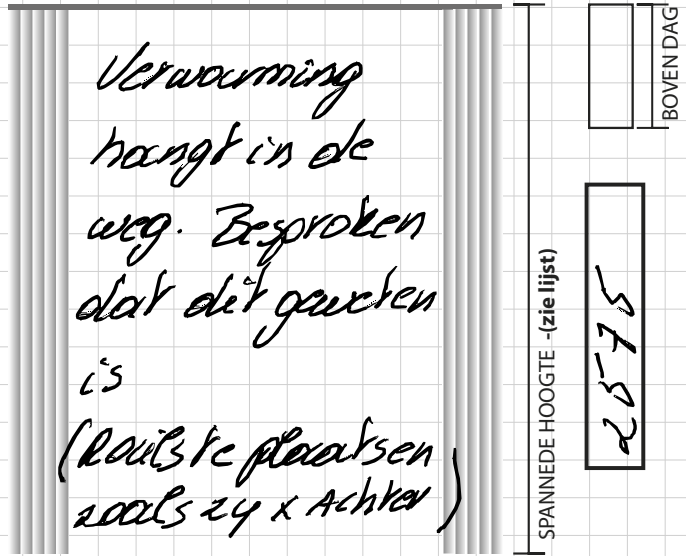 Verwarming
hangt in de
weg. Besproken
dat dit geweten
is
(Rails te plaatsen
zoals zy x Achter)
SPANNEDE HOOGTE -(zie lijst)
2575
BOVEN DAG